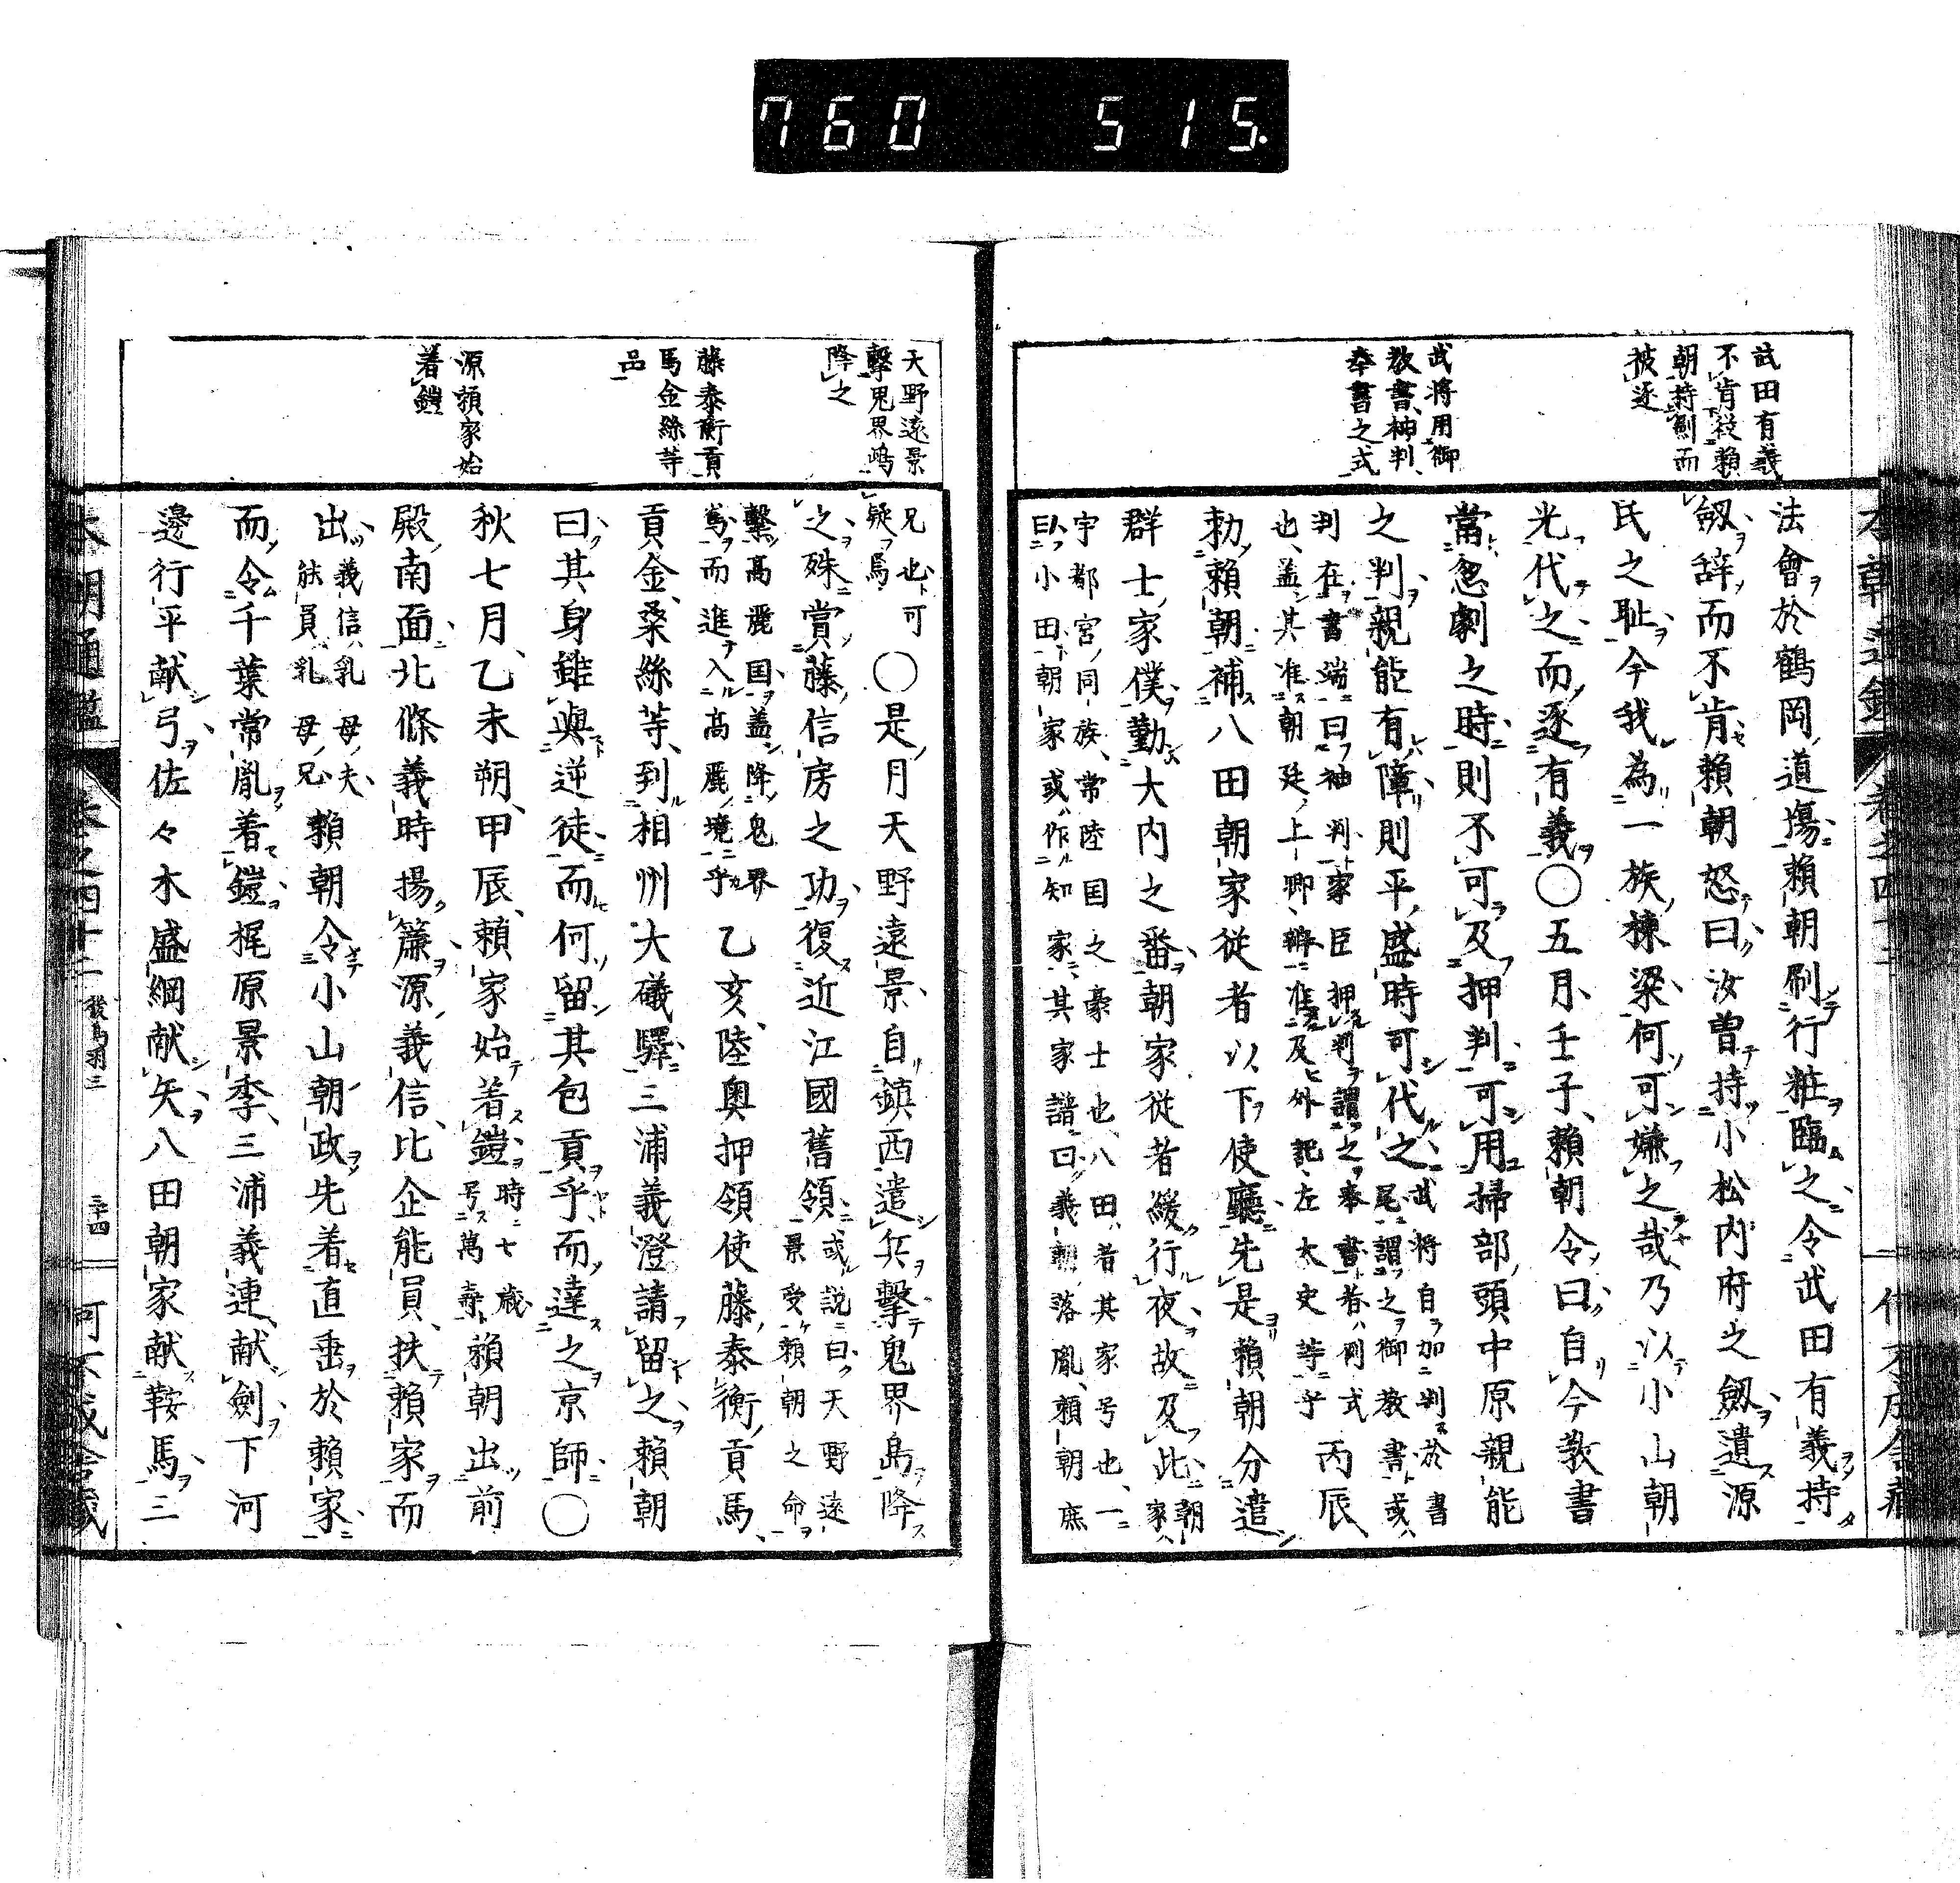 760 515.
武田有義
不肯從賴
朝持劍而
被逐
武將用御
教書袖判
奉書之式
法會於鶴岡道場賴朝刷行粧臨之令武田有義持
劔辞而不肯賴朝怒曰汝曽持小松内府之劔遺源
氏之耻今我為一族棟梁何可嫌之哉乃以小山朝
光代之而逐有義〇五月壬子賴朝令曰自今教書
當怱劇之時則不可及押判可用掃部頭中原親能
之判親能有障則平盛時可代之
武将自加判於書
尾謂之御教書或
判在書端曰袖判家臣押判謂之奉書若例式
也盖其准朝廷上卿辨准及外記左大史等乎
丙辰
勅賴朝補八田朝家従者以下使廳先是賴朝分遣
群士家僕勤大内之番朝家従者緩行夜故及此
朝
家ハ
宇都宮同族常陸国之豪士也八田者其家号也一
曰小田朝家或作知家其家譜曰義朝落胤賴朝庶
天野遠景
擊鬼界嶋
降之
藤泰衡貢
馬金絲等
品
源賴家始
着鎧
兄也可
疑焉
〇是月天野遠景自鎮西遣兵擊鬼界島降
之殊賞藤信房之功復近江國舊領
或説曰天野遠
景受賴朝之命
擊高麗国盖降鬼界
嶌而進入高麗境乎
乙亥陸奥押領使藤泰衡貢馬
貢金桑絲等到相州大礒驛三浦義澄請留之賴朝
曰其身雖與逆徒而何留其包貢乎而達之京師〇
秋七月乙未朔甲辰賴家始着鎧
時七歳
号萬壽
賴朝出前
殿南面北條義時揚簾源義信比企能員扶賴家而
出
義信乳母夫
能員乳母兄
賴朝令小山朝政先着直垂於賴家
而令千葉常胤着鎧梶原景季三浦義連献劍下河
邊行平献弓佐々木盛綱献矢八田朝家献鞍馬三
本朝通鑑
卷之四十二
後鳥羽三
三十四